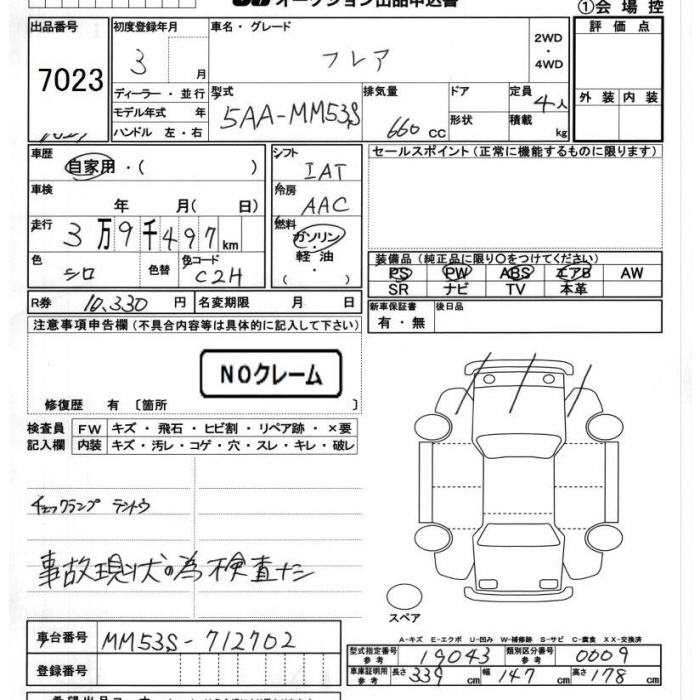 オークション出品申込書
①会場控
出品番号 初度登録年月 車名・グレード 2WD・4WD 評価点
7023 3月 フレア
ディーラー・並行 型式 排気量 ドア 定員 4人 外装 内装
モデル年式 年 5AA-MM53S 660cc 形状 積載 kg
ハンドル 左・右
車歴 自家用・( ) シフト IAT セールスポイント(正常に機能するものに限ります)
車検 年 月( 日) 冷房 AAC
走行 3万9千497km 燃料 ガソリン・軽油・( )
色 シロ 色替 色コード C2H 装備品(純正品に限り○をつけてください)
PS PW ABS エアB AW
SR ナビ TV 本革
R券 10,330円 名変期限 月 日 新車保証書 有・無 後日品
注意事項申告欄(不具合内容等は具体的に記入して下さい)
NOクレーム
修復歴 有 〔箇所 〕
検査員 FW キズ・飛石・ヒビ割・リペア跡・×要
記入欄 内装 キズ・汚レ・コゲ・穴・スレ・キレ・破レ
チェックランプ テントウ
事故現状の為検査ナシ
スペア
A-キズ E-エクボ U-凹み W-補修跡 S-サビ C-腐食 XX-交換済
車台番号 MM53S-712702 型式指定番号 参考 19043 類別区分番号 参考 0009
登録番号 車庫証明用 参考 長さ 339cm 幅 147cm 高さ 178cm